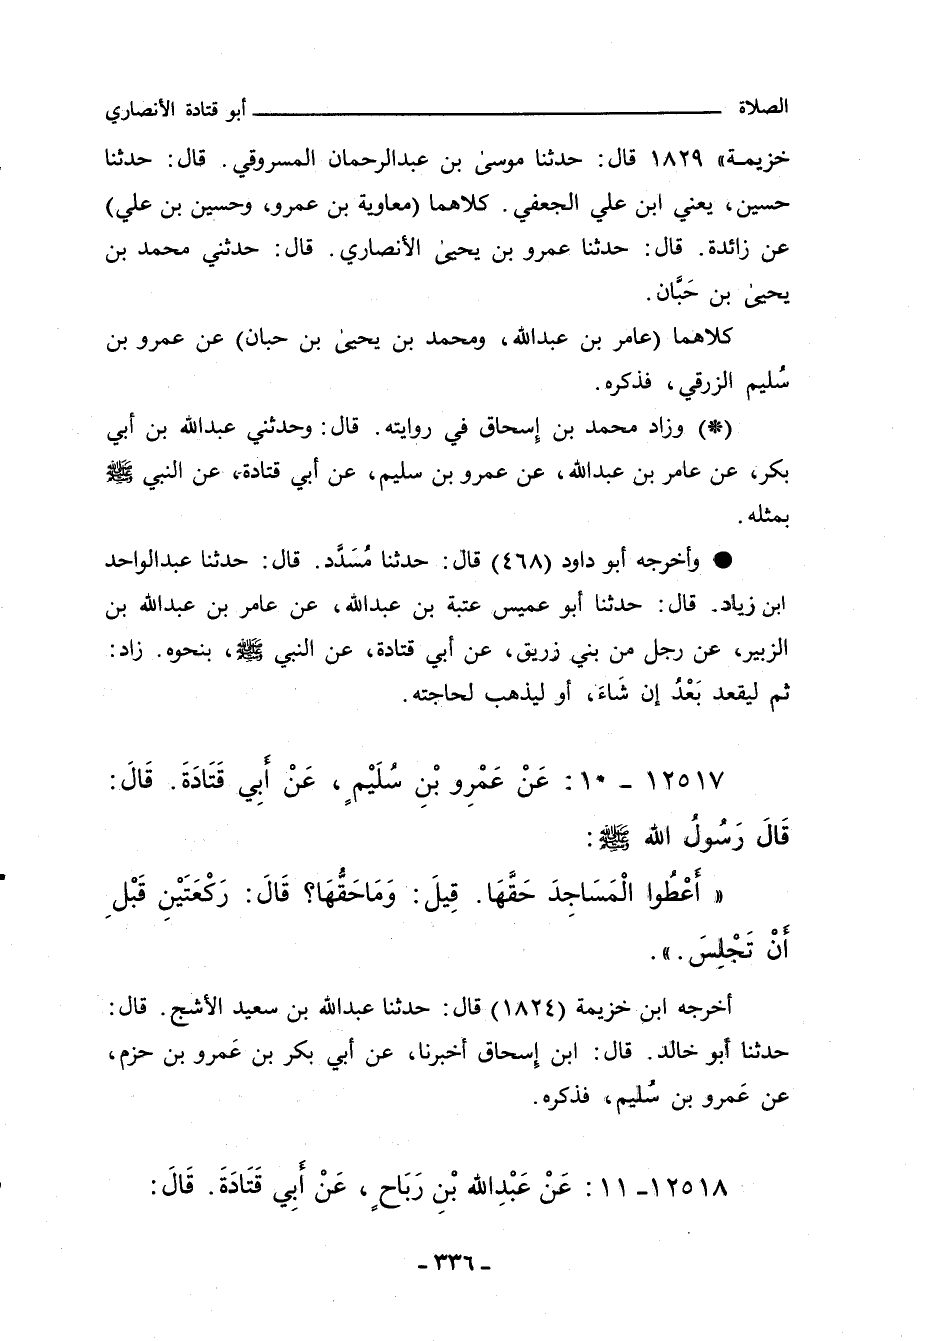 الصلاة ــــــــــــــــــــــــــــــــ أبو قتادة الأنصاري
خزيمـة» ١٨٢٩ قال: حدثنا موسىٰ بن عبدالرحمان المسروقي. قال: حدثنا
حسين، يعني ابن علي الجعفي. كلاهما (معاوية بن عمرو، وحسين بن علي)
عن زائدة. قال: حدثنا عمرو بن يحيىٰ الأنصاري. قال: حدثني محمد بن
يحيىٰ بن حَبَّان.
كلاهما (عامر بن عبدالله، ومحمد بن يحيىٰ بن حبان) عن عمرو بن
سُليم الزرقي، فذكره.
(*) وزاد محمد بن إسحاق في روايته. قال: وحدثني عبدالله بن أبي
بكر، عن عامر بن عبدالله، عن عمرو بن سليم، عن أبي قتادة، عن النبي ﷺ
بمثله.
● وأخرجه أبو داود (٤٦٨) قال: حدثنا مُسَدَّد. قال: حدثنا عبدالواحد
ابن زياد. قال: حدثنا أبو عميس عتبة بن عبدالله، عن عامر بن عبدالله بن
الزبير، عن رجل من بني زريق، عن أبي قتادة، عن النبي ﷺ، بنحوه. زاد:
ثم ليقعد بَعْدُ إن شَاءَ، أو ليذهب لحاجته.
١٢٥١٧ - ١٠: عَنْ عَمْرِو بْنِ سُلَيْمٍ، عَنْ أَبِي قَتَادَةَ. قَالَ:
قَالَ رَسُولُ الله ﷺ:
« أَعْطُوا الْمَسَاجِدَ حَقَّهَا. قِيلَ: وَمَاحَقُّهَا؟ قَالَ: رَكْعَتَيْنِ قَبْلِ
أَنْ تَجْلِسَ.».
أخرجه ابن خزيمة (١٨٢٤) قال: حدثنا عبدالله بن سعيد الأشج. قال:
حدثنا أبو خالد. قال: ابن إسحاق أخبرنا، عن أبي بكر بن عَمرو بن حزم،
عن عَمرو بن سُليم، فذكره.
١٢٥١٨- ١١: عَنْ عَبْدِالله بْنِ رَبَاحٍ، عَنْ أَبِي قَتَادَةَ. قَالَ:
- ٣٣٦ -